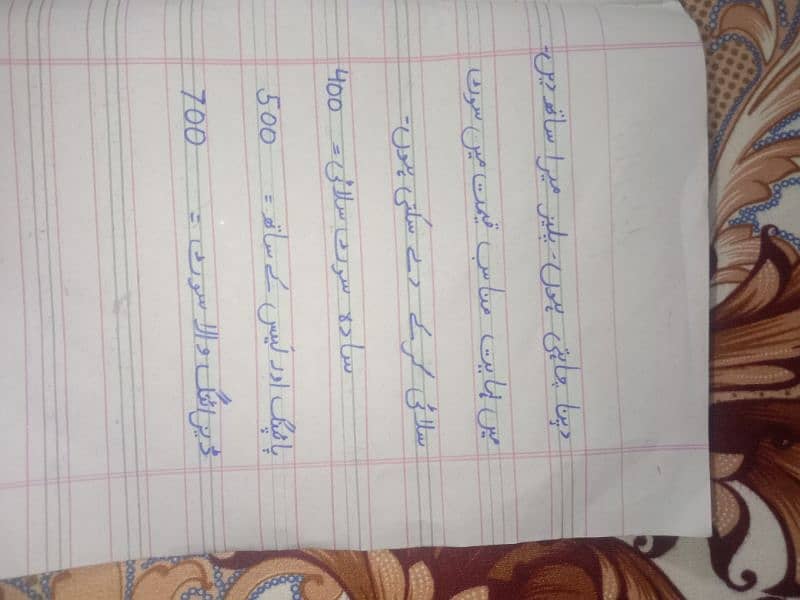 دینا چاہتی ہوں۔ پلیز میرا ساتھ دیں۔
میں نہایت مناسب قیمت میں سوٹ
سلائی کرکے دے سکتی ہوں۔
سادہ سوٹ سلائی = 400
پائپنگ اور لیس کے ساتھ = 500
ڈیزائنگ والا سوٹ = 700